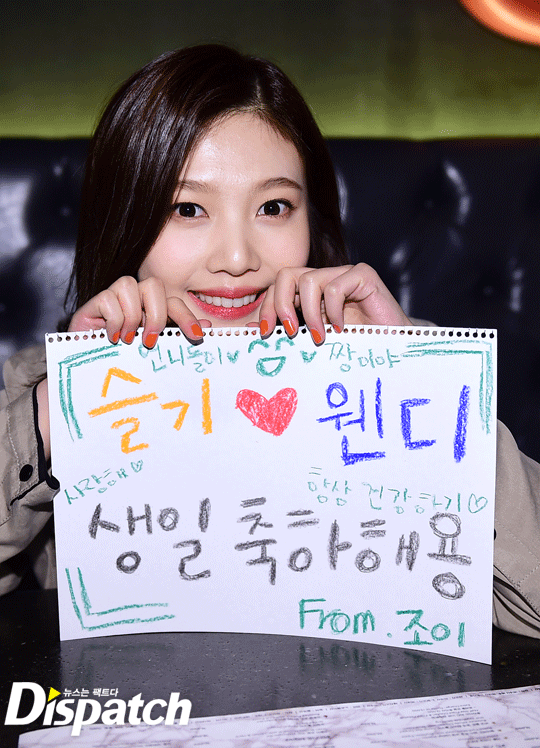 언니들이♥ ♥짱이야
슬기♥웬디
사랑해♡
항상 건강하기♡
생일 축하해용
From. 조이
뉴스는 팩트다
Dispatch